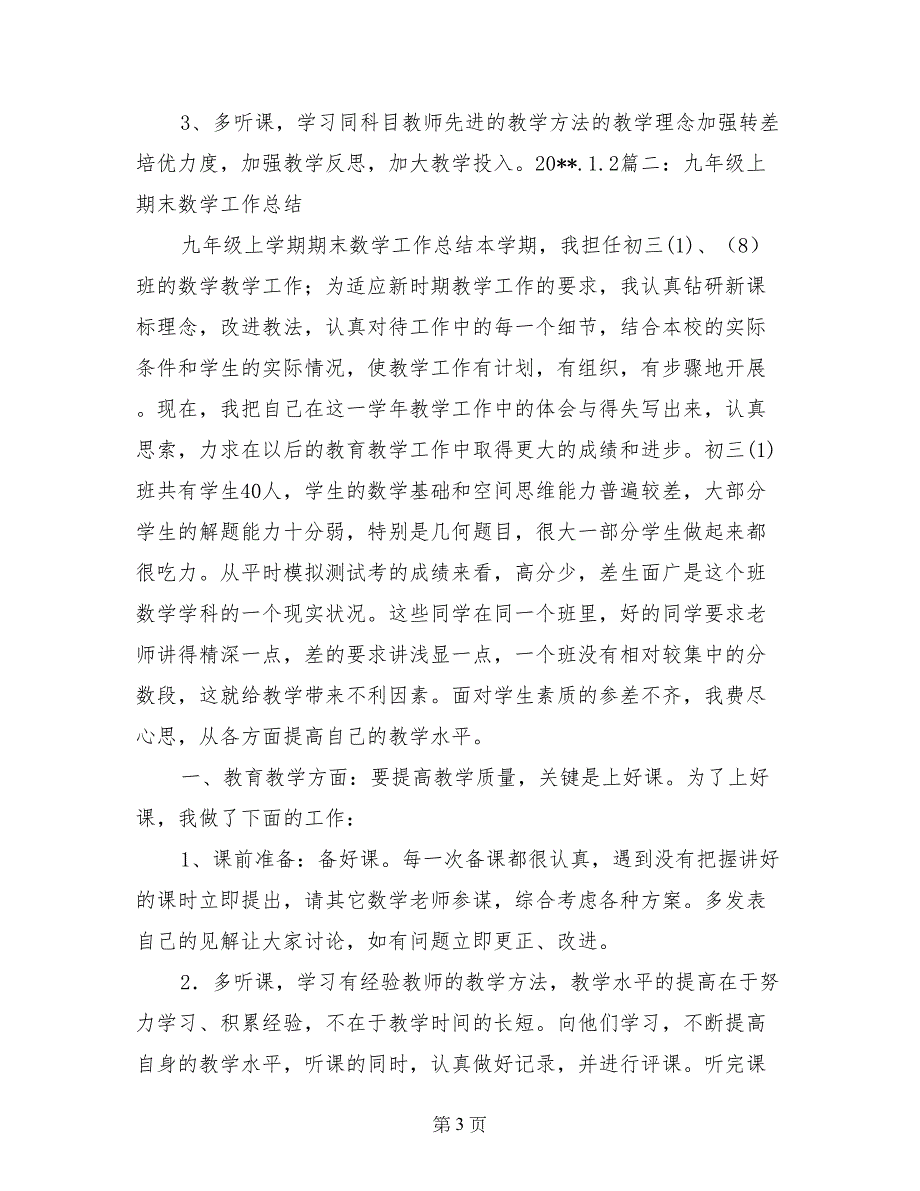 3、多听课，学习同科目教师先进的教学方法的教学理念加强转差
培优力度，加强教学反思，加大教学投入。20**.1.2篇二：九年级上
期末数学工作总结
九年级上学期期末数学工作总结本学期，我担任初三(1)、（8）
班的数学教学工作；为适应新时期教学工作的要求，我认真钻研新课
标理念，改进教法，认真对待工作中的每一个细节，结合本校的实际
条件和学生的实际情况，使教学工作有计划，有组织，有步骤地开展
。现在，我把自己在这一学年教学工作中的体会与得失写出来，认真
思索，力求在以后的教育教学工作中取得更大的成绩和进步。初三(1)
班共有学生40人，学生的数学基础和空间思维能力普遍较差，大部分
学生的解题能力十分弱，特别是几何题目，很大一部分学生做起来都
很吃力。从平时模拟测试考的成绩来看，高分少，差生面广是这个班
数学学科的一个现实状况。这些同学在同一个班里，好的同学要求老
师讲得精深一点，差的要求讲浅显一点，一个班没有相对较集中的分
数段，这就给教学带来不利因素。面对学生素质的参差不齐，我费尽
心思，从各方面提高自己的教学水平。
一、教育教学方面：要提高教学质量，关键是上好课。为了上好
课，我做了下面的工作：
1、课前准备：备好课。每一次备课都很认真，遇到没有把握讲好
的课时立即提出，请其它数学老师参谋，综合考虑各种方案。多发表
自己的见解让大家讨论，如有问题立即更正、改进。
2．多听课，学习有经验教师的教学方法，教学水平的提高在于努
力学习、积累经验，不在于教学时间的长短。向他们学习，不断提高
自身的教学水平，听课的同时，认真做好记录，并进行评课。听完课
第 3 页